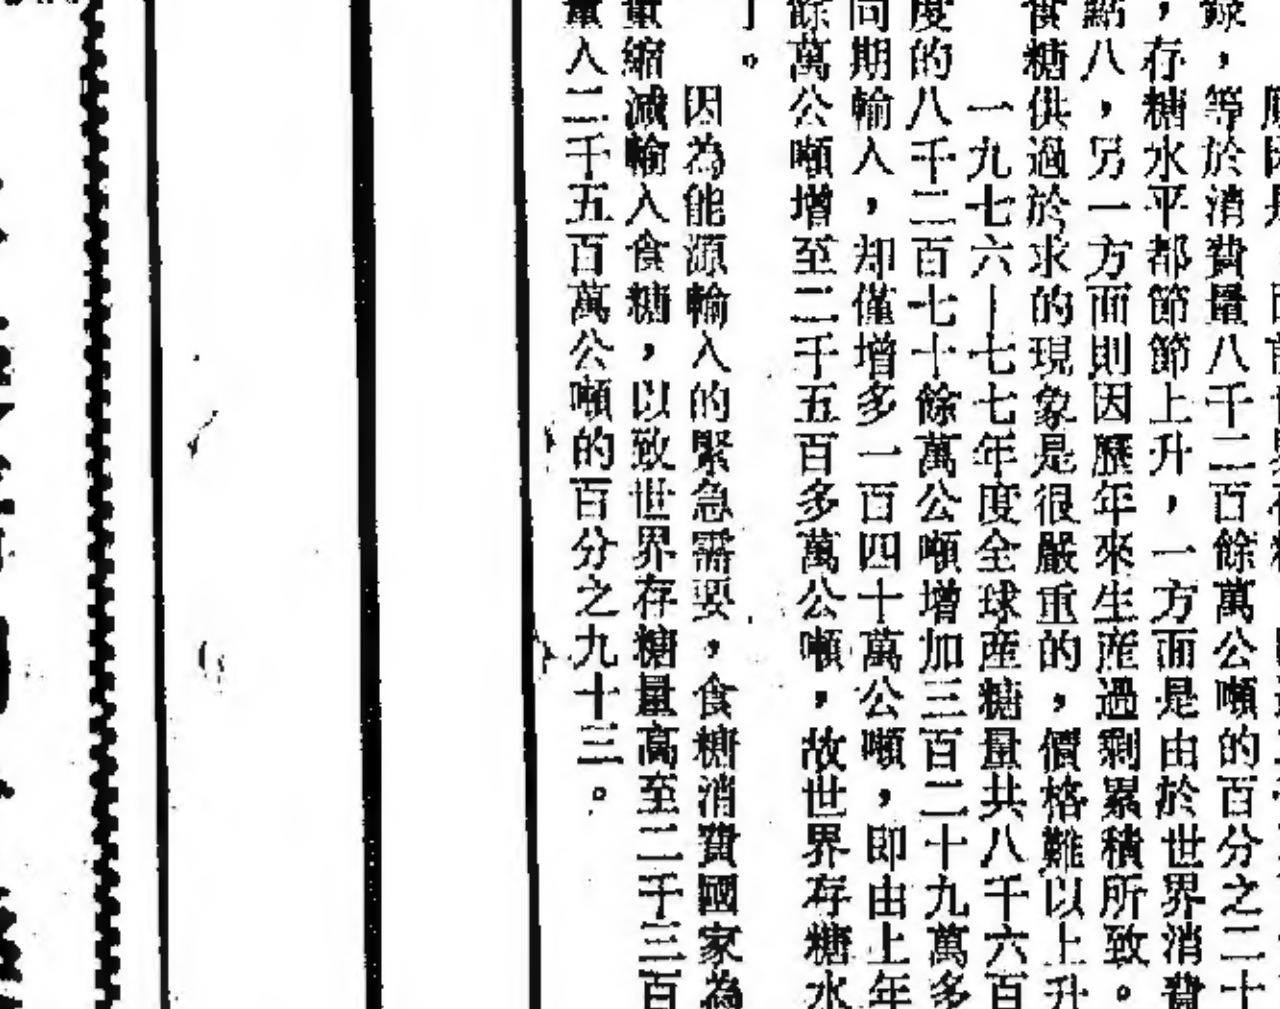 錄，等於消費量八千二百餘萬公噸的百分之二十
，存糖水平都節節上升，一方面是由於世界消費
點八，另一方面則因歷年來生產過剩累積所致。
食糖供過於求的現象是很嚴重的，價格難以上升
一九七六—七七年度全球產糖量共八千六百
度的八千二百七十餘萬公噸增加三百二十九萬多
同期輸入，却僅增多一百四十萬公噸，即由上年
餘萬公噸增至二千五百多萬公噸，故世界存糖水
。
因為能源輸入的緊急需要，食糖消費國家為
重縮減輸入食糖，以致世界存糖量高至二千三百
量入二千五百萬公噸的百分之九十三。